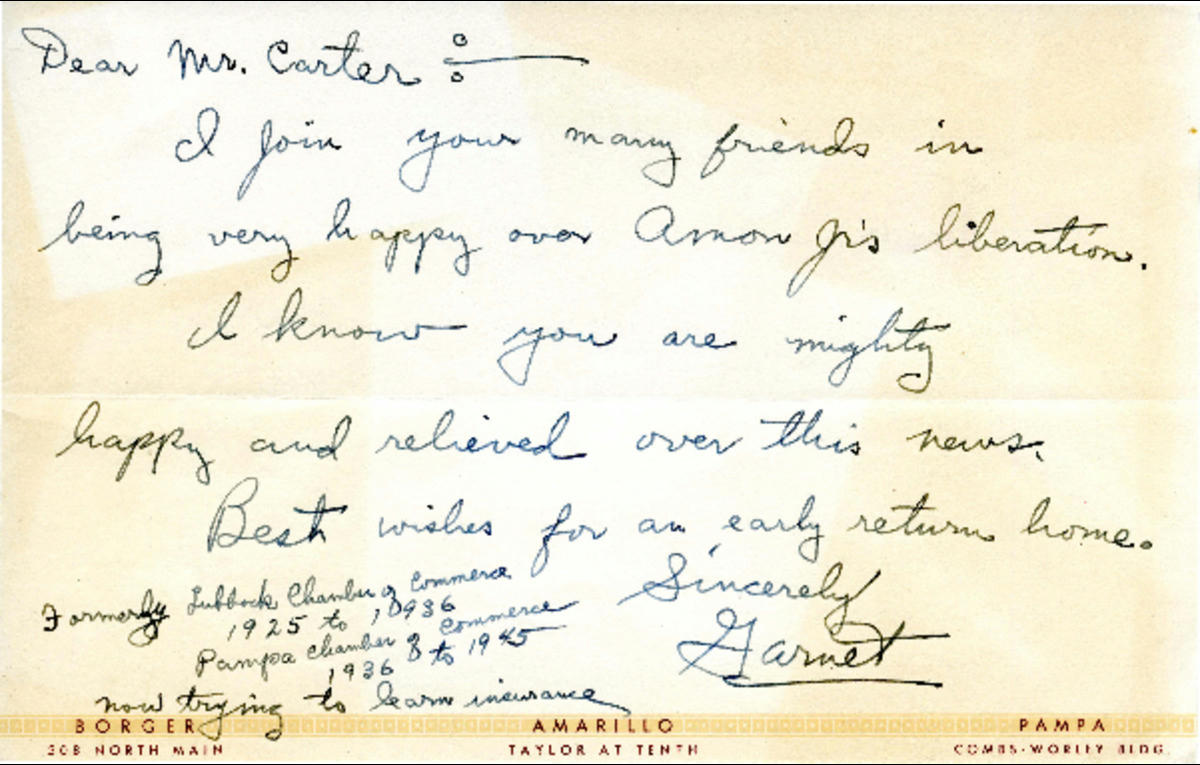 Dear Mr. Carter :—
I join your many friends in
being very happy over Amon Jr's liberation.
I know you are mighty
happy and relieved over this news.
Best wishes for an early return home.
Sincerely
Garnet
Formerly Lubbock Chamber of Commerce
1925 to 1936
Pampa Chamber of Commerce
1936 to 1945
now trying to learn insurance
BORGER AMARILLO PAMPA
308 NORTH MAIN TAYLOR AT TENTH COMBS-WORLEY BLDG.